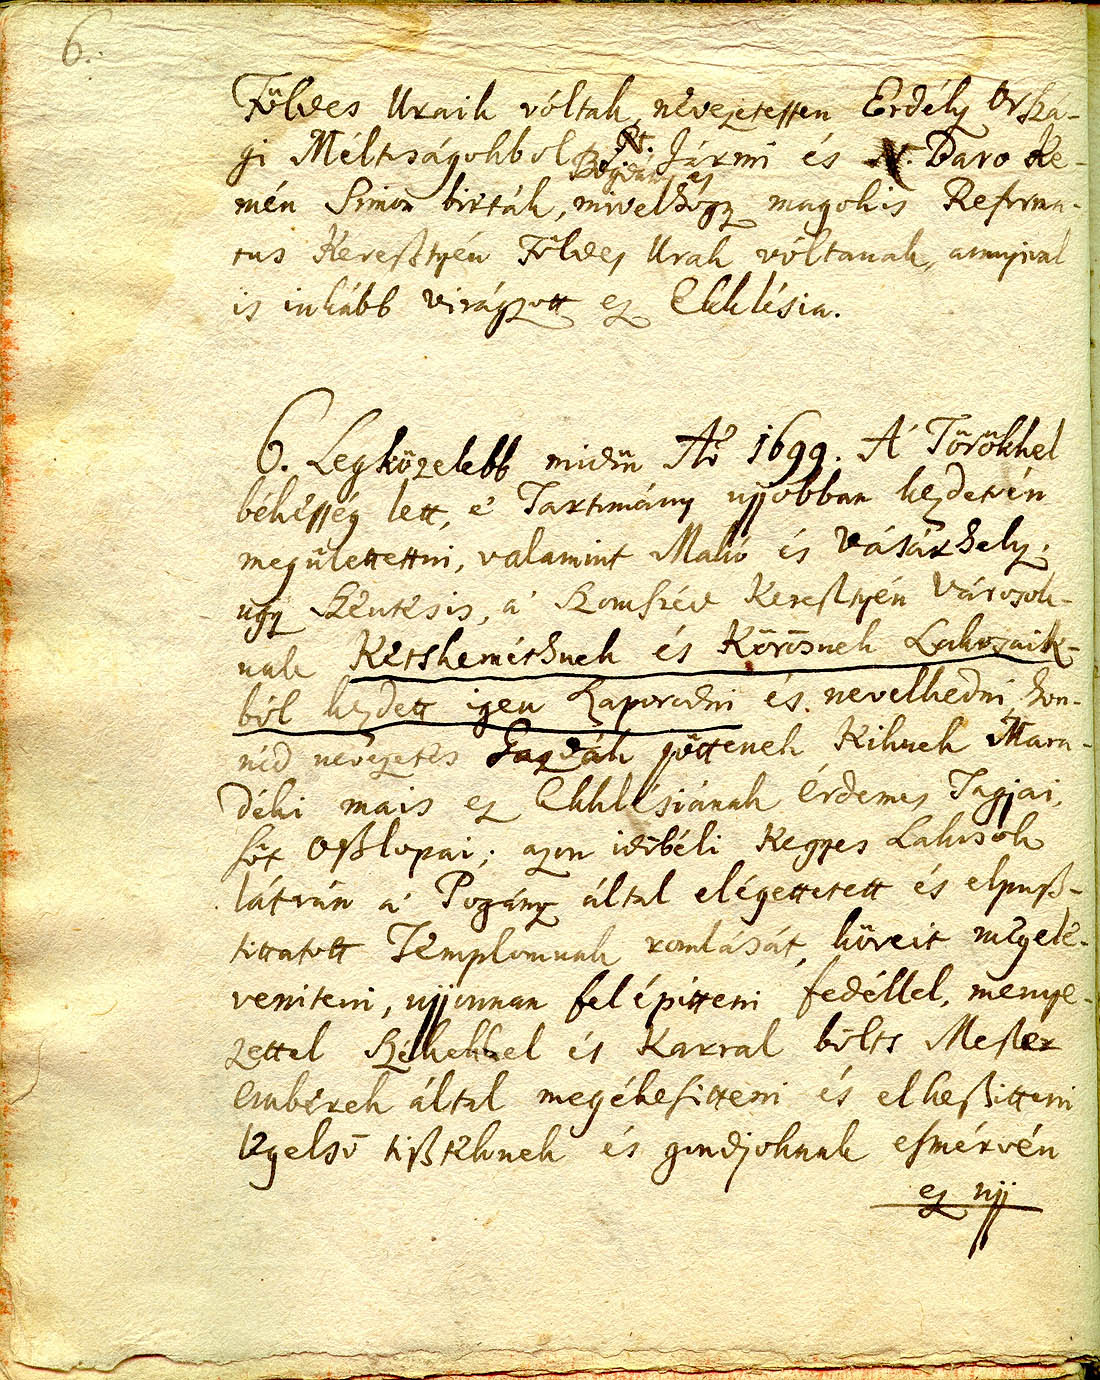 6.
Földes Uraik vóltak, nevezetessen Erdély Orszá-
gi Méltoságokbol Bogdán és Jármi és N. Baro Ke-
mén Simon birták, mivelhogy magokis Reforma-
tus Kereßtyén Földes Urak vóltanak, annyival
is inkább virágzott ez Ekklésia.
6. Legközelebb midőn Aõ 1699. A' Törökkel
békesség lett, e' Tartomány ujjobban kezdetvén
megűlettettni, valamint Makó és Vásárhely,
ugy Szentesis, a' Szomszéd Kereßtyén Városok-
nak Ketskemétnek és Körösnek Lakosaik-
ból kezdett igen szaporodni és nevelkedni, hon-
néd nevezetes Gazdák jöttenek Kiknek Mara-
déki mais ez Ekklésiának Érdemes Tagjai,
sőt Oßlopai; azon időbéli Kegyes Lakosok
látván a' Pogány által elégettetett és elpuß-
tittatott Templomnak romlását, köveit megele-
veniteni, ujjonnan felépitteni fedéllel, menye-
zettel Székekkel és Karral bölts Mester
Emberek által megékesitteni és elkeßitteni
Legelső tißteknek és gondjoknak esmérvén
ez ujj